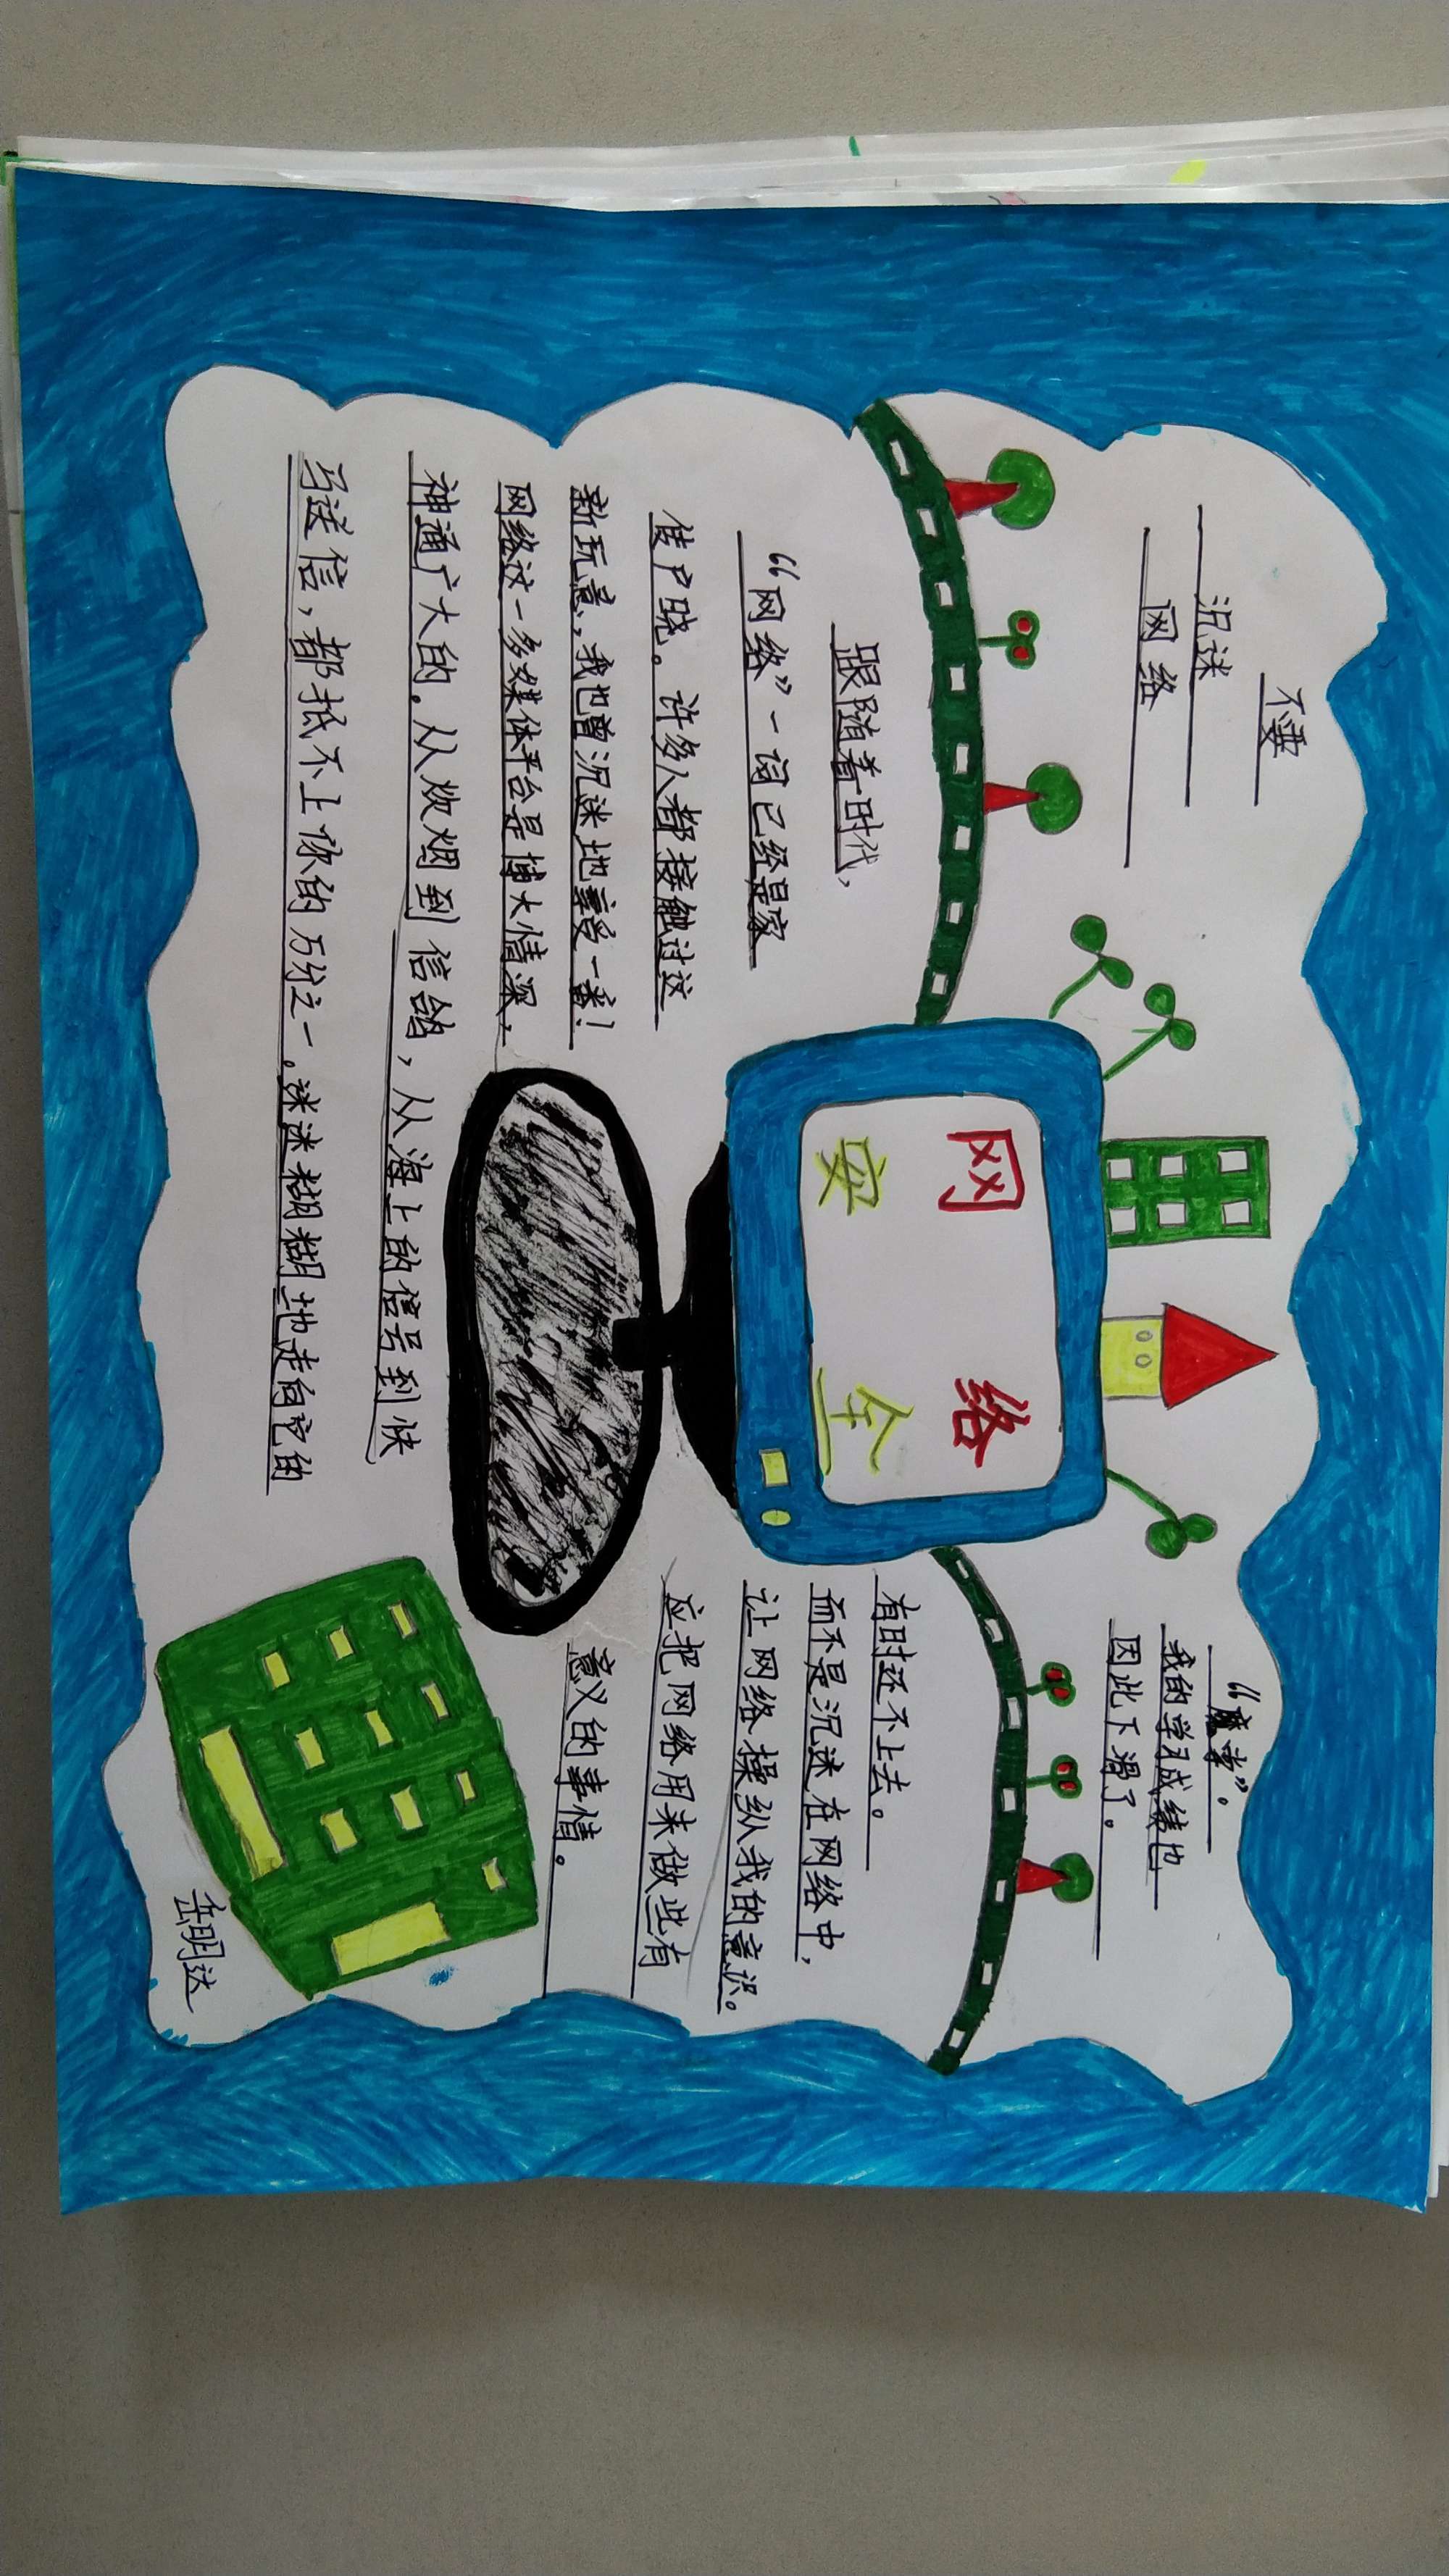 不要
沉迷
网络
网络
安全
跟随着时代，
“网络”一词已经是家
使户晓。许多人都接触过这
新玩意，我也曾沉迷地享受一番！
网络这一多媒体平台是博大情深，
神通广大的。从炊烟到信鸽，从海上的信号到快
马送信，都抵不上你的万分之一。迷迷糊糊地走向它的
“魔掌”。
我的学习成绩也
因此下滑了。
有时还不上去。
而不是沉迷在网络中，
让网络操纵我的意识。
应把网络用来做些有
意义的事情。
岳明达